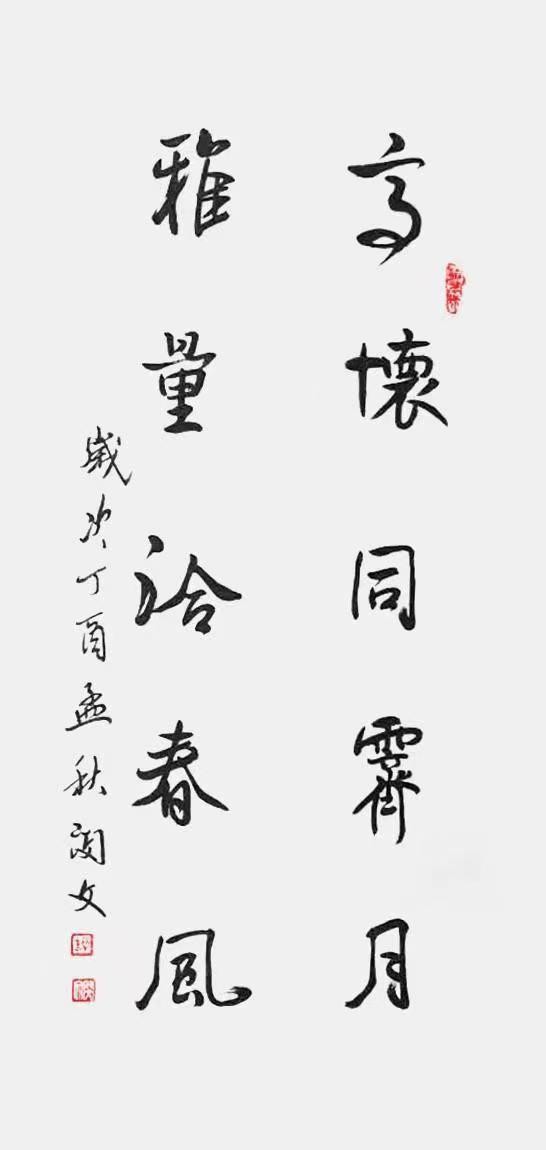 高懷同霽月
雅量洽春風
歲次丁酉孟秋闵文